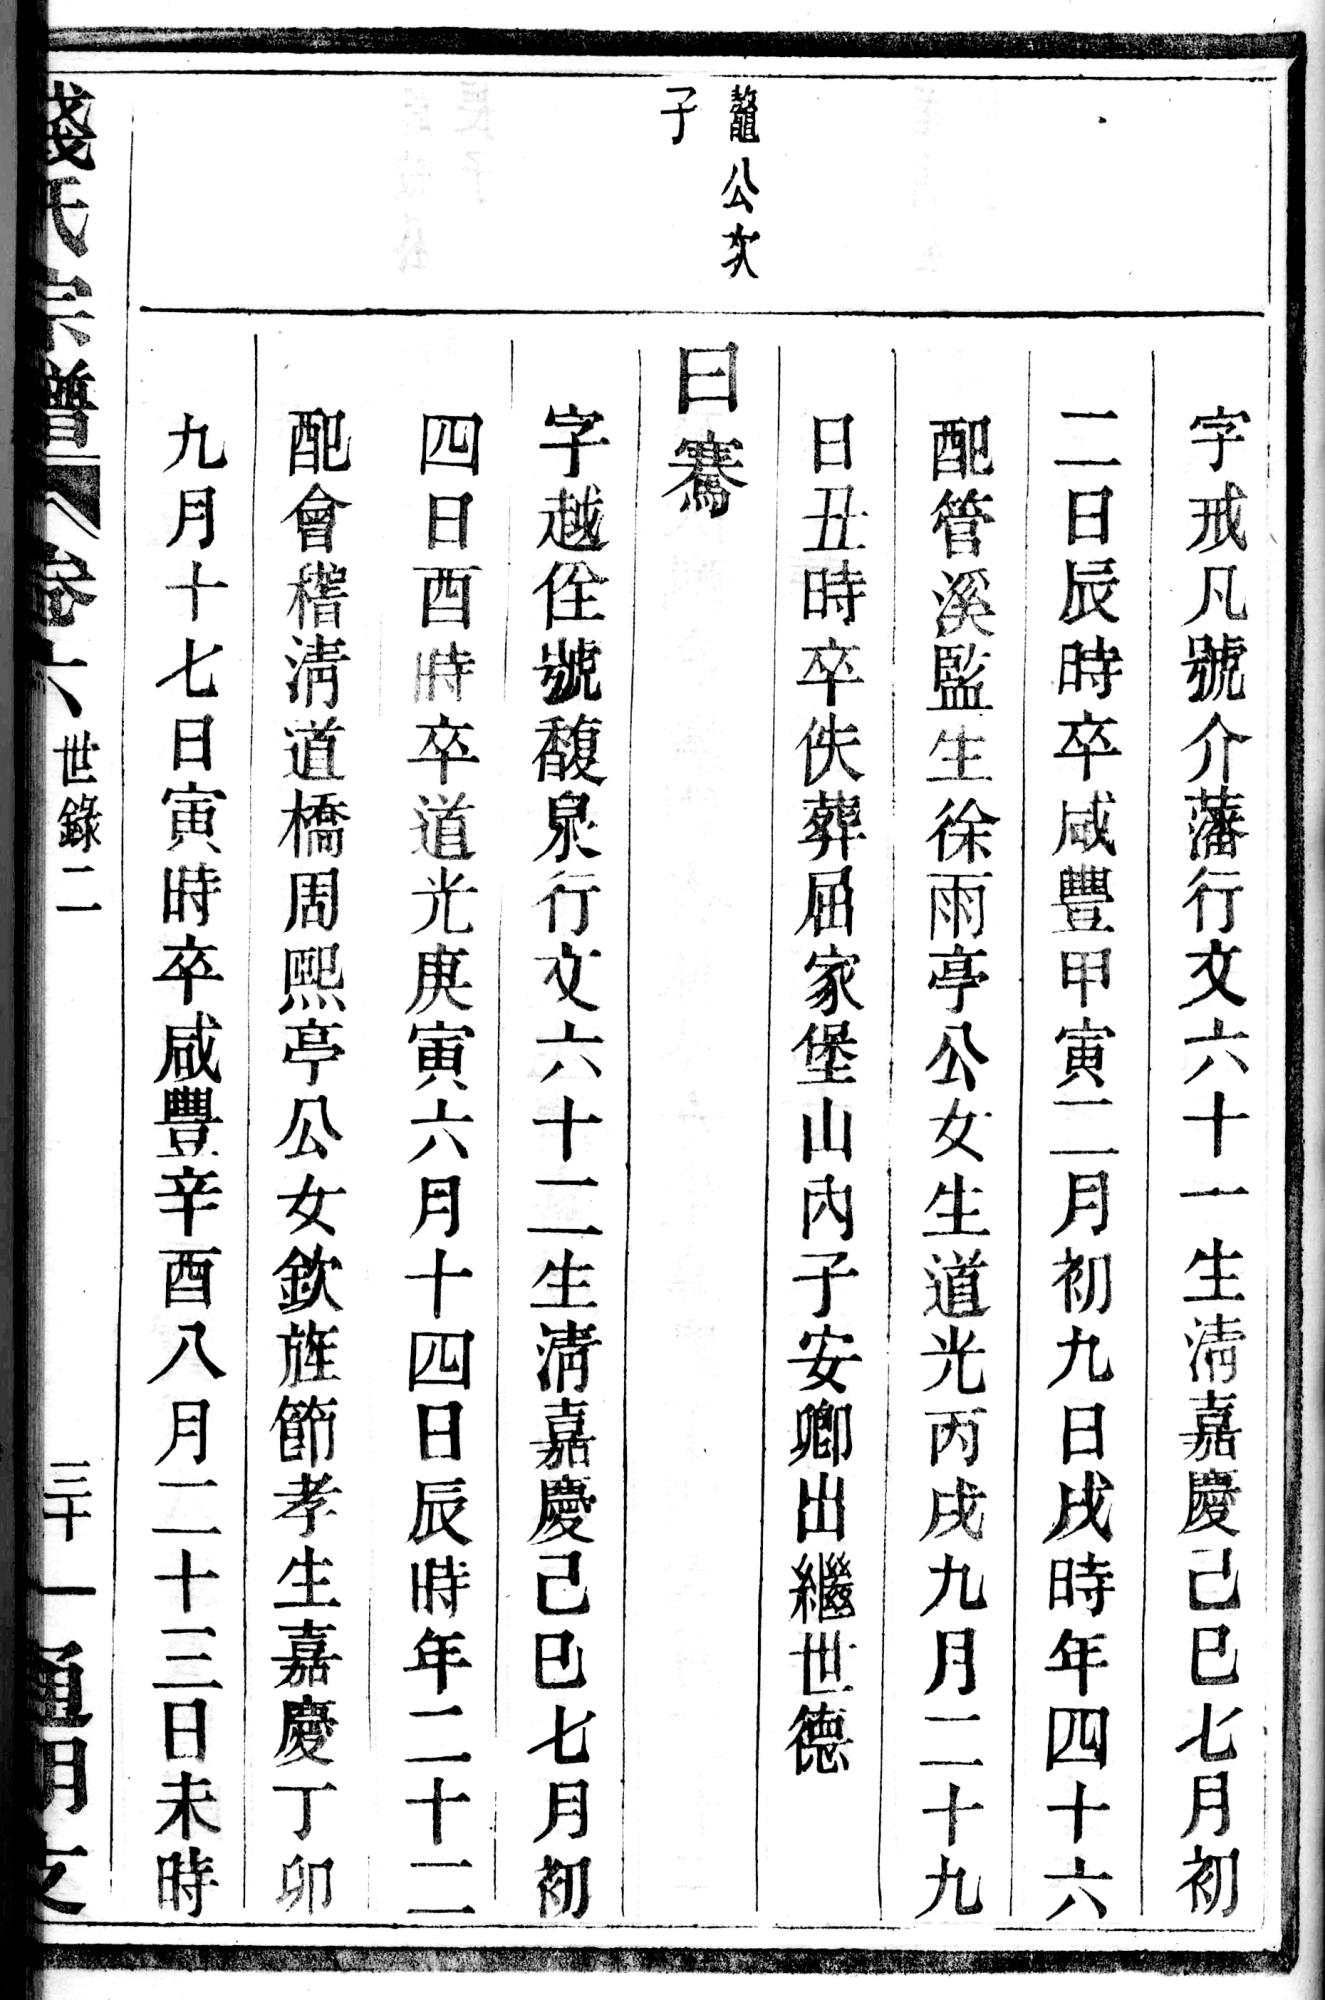 字戒凡號介藩行文六十一生淸嘉慶己巳七月初
二日辰時卒咸豐甲寅二月初九日戌時年四十六
配管溪監生徐雨亭公女生道光丙戌九月二十九
日丑時卒佚葬屈家堡山內子安卿出繼世德
鼇公次
子
曰騫
字越佺號馥泉行文六十二生淸嘉慶己巳七月初
四日酉時卒道光庚寅六月十四日辰時年二十二
配會稽淸道橋周熙亭公女欽旌節孝生嘉慶丁卯
九月十七日寅時卒咸豐辛酉八月二十三日未時
錢氏宗譜
卷六
世錄二
三十一
通明支